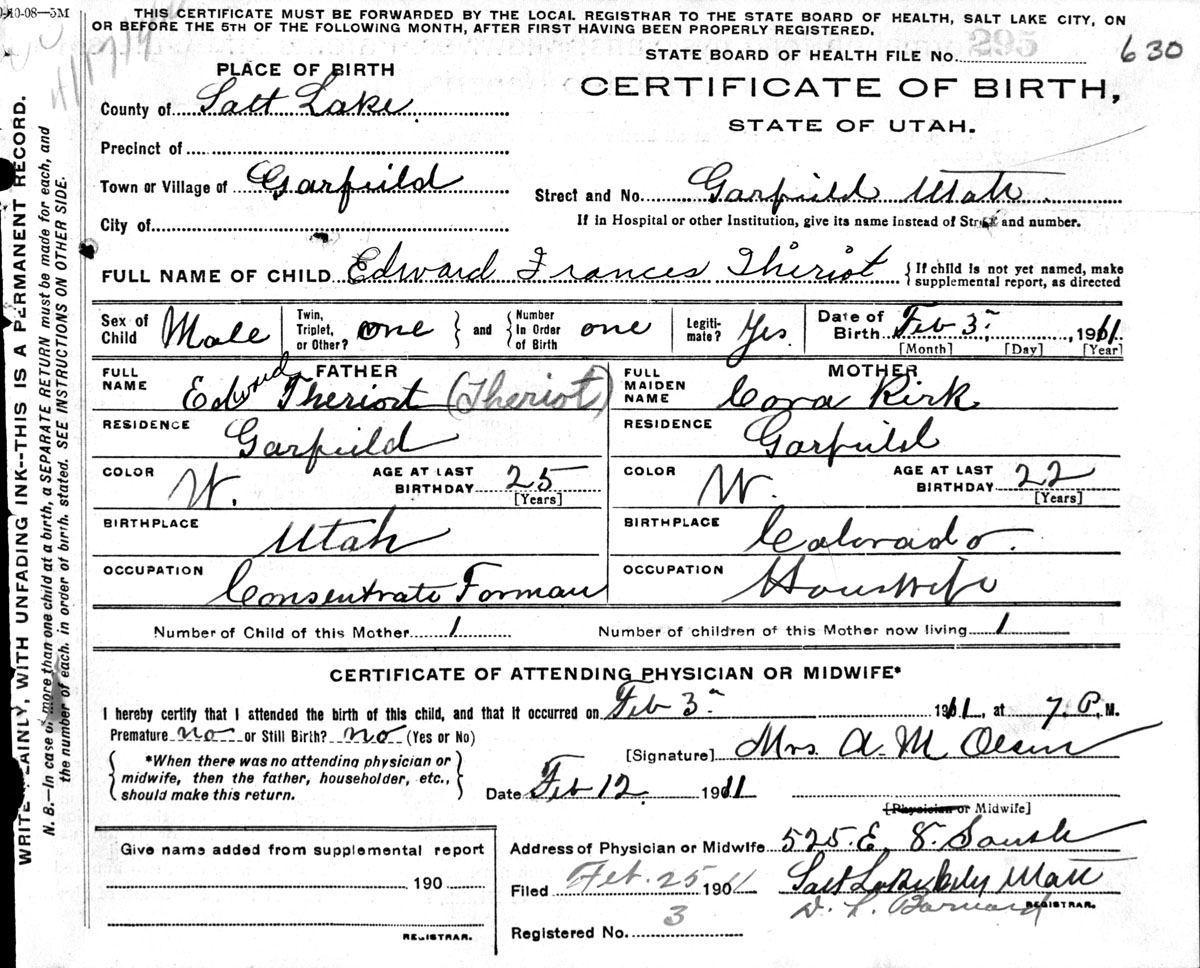 0-10-08—5M
THIS CERTIFICATE MUST BE FORWARDED BY THE LOCAL REGISTRAR TO THE STATE BOARD OF HEALTH, SALT LAKE CITY, ON
OR BEFORE THE 5TH OF THE FOLLOWING MONTH, AFTER FIRST HAVING BEEN PROPERLY REGISTERED.
295
STATE BOARD OF HEALTH FILE No. 630
PLACE OF BIRTH
CERTIFICATE OF BIRTH,
STATE OF UTAH.
County of Salt Lake
Precinct of
Town or Village of Garfield
Street and No. Garfield Utah
City of
If in Hospital or other Institution, give its name instead of Street and number.
FULL NAME OF CHILD Edward Frances Theriot
{If child is not yet named, make
supplemental report, as directed
Sex of Child Male
Twin, Triplet, or Other? one } and { Number In Order of Birth one
Legiti-mate? Yes.
Date of Birth Feb 3, 1911.
[Month] [Day] [Year]
FATHER
FULL NAME Edward Theriort (Theriot)
MOTHER
FULL MAIDEN NAME Cora Kirk
RESIDENCE Garfield
RESIDENCE Garfield
COLOR W. AGE AT LAST BIRTHDAY 25
[Years]
COLOR W. AGE AT LAST BIRTHDAY 22
[Years]
BIRTHPLACE Utah
BIRTHPLACE Colorado.
OCCUPATION Consentrate Forman
OCCUPATION Houswife
Number of Child of this Mother 1
Number of children of this Mother now living 1
CERTIFICATE OF ATTENDING PHYSICIAN OR MIDWIFE*
I hereby certify that I attended the birth of this child, and that it occurred on Feb 3 1911, at 7. P. M.
Premature no or Still Birth? no (Yes or No)
[Signature] Mrs. A. M Olsen
{ *When there was no attending physician or
midwife, then the father, householder, etc.,
should make this return. }
Date Feb 12 1911
[Physician or Midwife]
Give name added from supplemental report
190
REGISTRAR.
Address of Physician or Midwife 525. E. 8. South
Salt Lake City Utah
Filed Feb. 25 1901
D. L. Barnard REGISTRAR.
Registered No. 3
WRITE PLAINLY, WITH UNFADING INK--THIS IS A PERMANENT RECORD.
N. B.—In case of more than one child at a birth, a SEPARATE RETURN must be made for each, and
the number of each, in order of birth, stated. SEE INSTRUCTIONS ON OTHER SIDE.